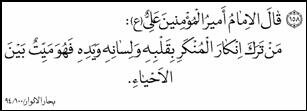 (۱۵۸) قَالَ الْاِمَامُ اَمیرُ الْمُؤْمِنینَ عَلِیٌّ(ع):
مَنْ تَرَكَ اِنْكَارَ الْمُنْكَرِ بِقَلْبِهِ وَلِسَانِهِ وَيَدِهِ فَهُوَ مَيِّتٌ بَيْنَ
الْاَحْيَاءِ.
بحار الانوار/۱۰۰/۹۴